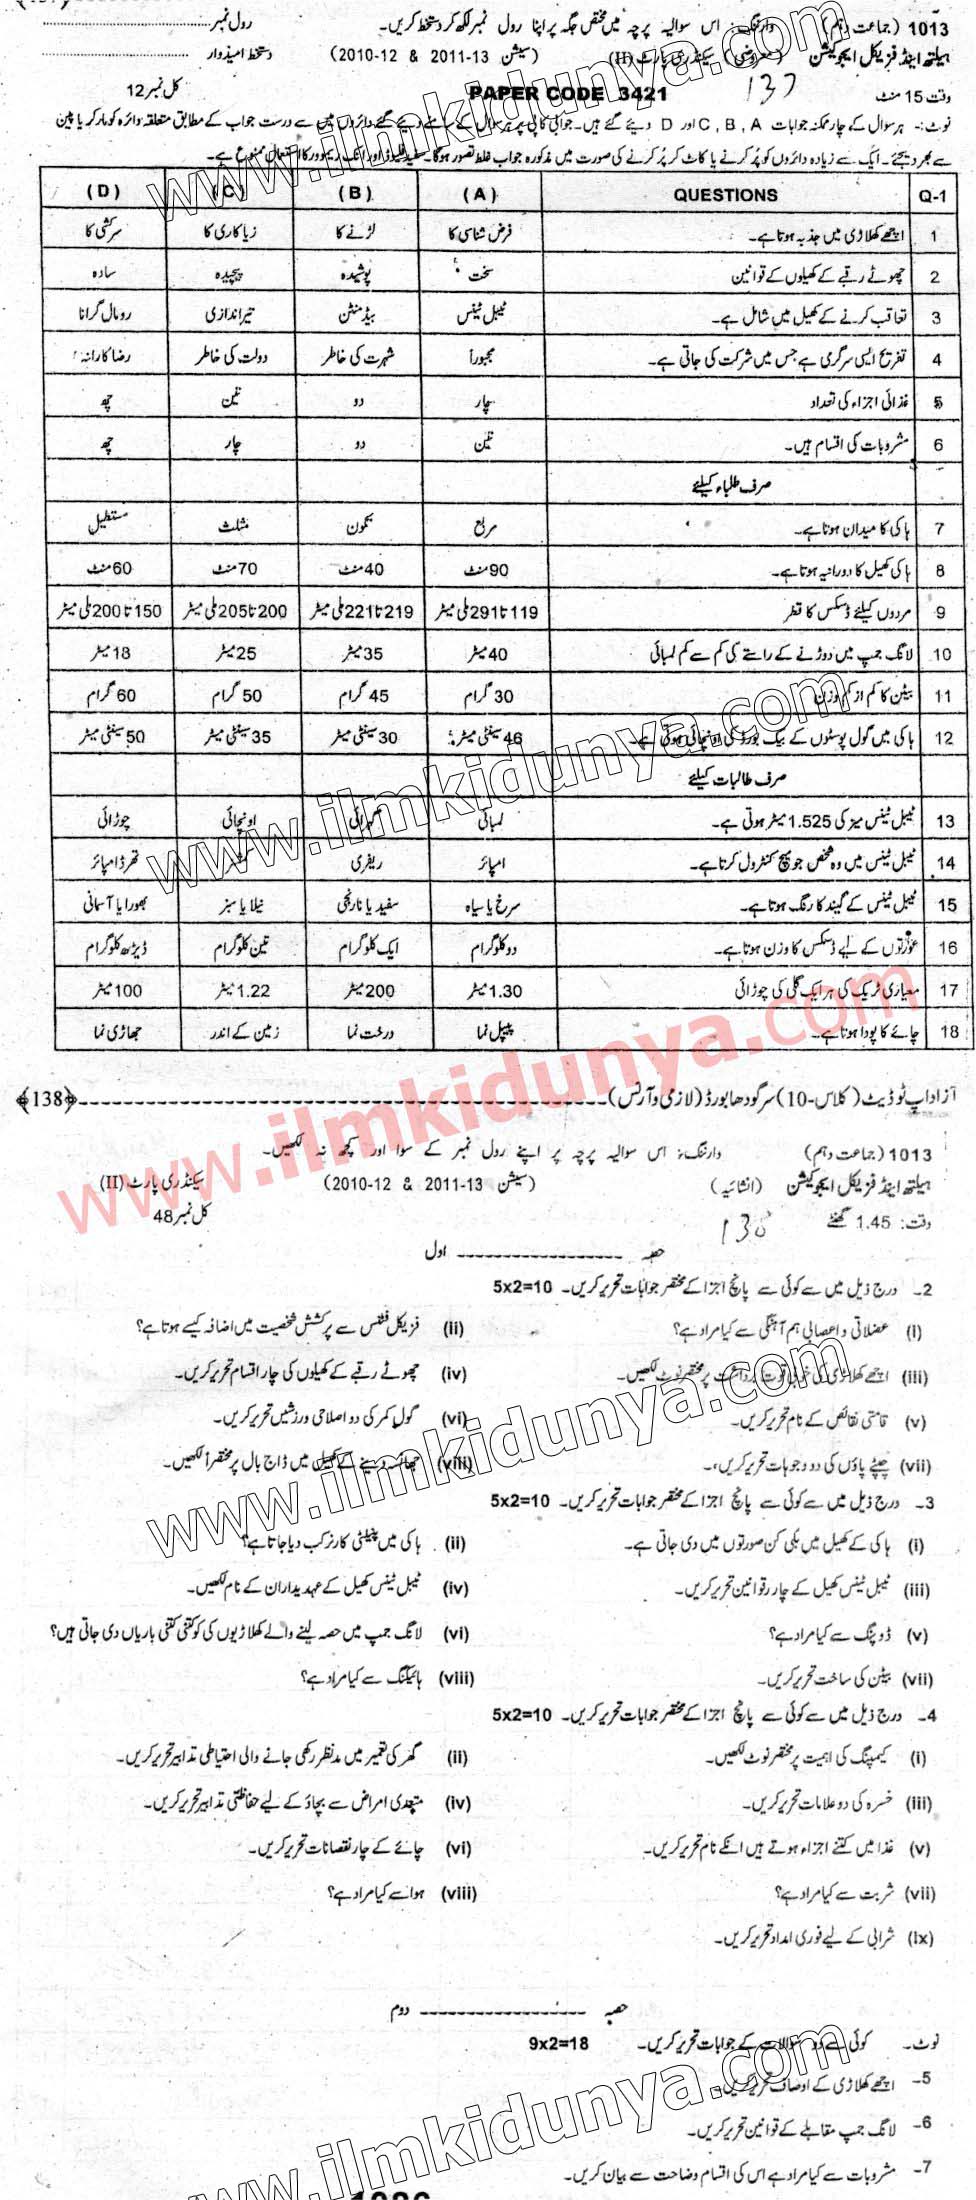 1013 (جماعت دہم) وارننگ:۔ اس سوالیہ پرچہ میں مختص جگہ پر اپنا رول نمبر لکھ کر دستخط کریں۔ رول نمبر
ہیلتھ اینڈ فزیکل ایجوکیشن (معروضی) سیکنڈری پارٹ (II) (سیشن 2011-13 & 2010-12) دستخط امیدوار
وقت 15 منٹ 137 PAPER CODE 3421 کل نمبر 12
نوٹ:۔ ہر سوال کے چار ممکنہ جوابات A , B , C اور D دیئے گئے ہیں۔ جوابی کاپی پر ہر سوال کے سامنے دیئے گئے دائروں میں سے درست جواب کے مطابق متعلقہ دائرہ کو مارکر یا پین
سے بھر دیجئے۔ ایک سے زیادہ دائروں کو پُر کرنے یا کاٹ کر پُر کرنے کی صورت میں مذکورہ جواب غلط تصور ہوگا۔ سفید فلیوڈ اور انک ریموور کا استعمال ممنوع ہے۔
Q-1 QUESTIONS (A) (B) (C) (D)
1 اچھے کھلاڑی میں جذبہ ہوتا ہے۔ فرض شناسی کا لڑنے کا ریاکاری کا سرکشی کا
2 چھوٹے رقبے کے کھیلوں کے قوانین سخت پوشیدہ پیچیدہ سادہ
3 تعاقب کرنے کے کھیل میں شامل ہے۔ ٹیبل ٹینس بیڈمنٹن تیراندازی رومال گرانا
4 تفریح ایسی سرگرمی ہے جس میں شرکت کی جاتی ہے۔ مجبوراً شہرت کی خاطر دولت کی خاطر رضاکارانہ
5 غذائی اجزاء کی تعداد چار دو تین چھ
6 مشروبات کی اقسام ہیں۔ تین دو چار چھ
صرف طلباء کیلئے
7 ہاکی کا میدان ہوتا ہے۔ مربع تکون مثلث مستطیل
8 ہاکی کھیل کا دورانیہ ہوتا ہے۔ 90 منٹ 40 منٹ 70 منٹ 60 منٹ
9 مردوں کیلئے ڈسکس کا قطر 119 تا 291 ملی میٹر 219 تا 221 ملی میٹر 200 تا 205 ملی میٹر 150 تا 200 ملی میٹر
10 لانگ جمپ میں دوڑنے کے راستے کی کم سے کم لمبائی 40 میٹر 35 میٹر 25 میٹر 18 میٹر
11 بیٹن کا کم از کم وزن 30 گرام 45 گرام 50 گرام 60 گرام
12 ہاکی میں گول پوسٹوں کے بیک بورڈ کی اونچائی ہوتی ہے۔ 46 سینٹی میٹر 30 سینٹی میٹر 35 سینٹی میٹر 50 سینٹی میٹر
صرف طالبات کیلئے
13 ٹیبل ٹینس میز کی 1.525 میٹر ہوتی ہے۔ لمبائی گہرائی اونچائی چوڑائی
14 ٹیبل ٹینس میں وہ شخص جو میچ کنٹرول کرتا ہے۔ امپائر ریفری تھرڈ امپائر
15 ٹیبل ٹینس کے گیند کا رنگ ہوتا ہے۔ سرخ یا سیاہ سفید یا نارنجی نیلا یا سبز بھورا یا آسمانی
16 عورتوں کے لیے ڈسکس کا وزن ہوتا ہے۔ دو کلوگرام ایک کلوگرام تین کلوگرام ڈیڑھ کلوگرام
17 معیاری ٹریک کی ہر ایک گلی کی چوڑائی 1.30 میٹر 200 میٹر 1.22 میٹر 100 میٹر
18 چائے کا پودا ہوتا ہے۔ پیپل نما درخت نما زمین کے اندر جھاڑی نما
آزاد اپ ٹو ڈیٹ (کلاس-10) سرگودھا بورڈ (لازمی و آرٹس) ------ ﴿138﴾
1013 (جماعت دہم) وارننگ:۔ اس سوالیہ پرچہ پر اپنے رول نمبر کے سوا اور کچھ نہ لکھیں۔
ہیلتھ اینڈ فزیکل ایجوکیشن (انشائیہ) (سیشن 2011-13 & 2010-12) سیکنڈری پارٹ (II)
وقت: 1.45 گھنٹے 138 کل نمبر 48
حصہ ------ اول
2۔ درج ذیل میں سے کوئی سے پانچ اجزا کے مختصر جوابات تحریر کریں۔ 5x2=10
(i) عضلاتی و اعصابی ہم آہنگی سے کیا مراد ہے؟ (ii) فزیکل فٹنس سے پرکشش شخصیت میں اضافہ کیسے ہوتا ہے؟
(iii) اچھے کھلاڑی کی خوبی قوت برداشت پر مختصر نوٹ لکھیں۔ (iv) چھوٹے رقبے کے کھیلوں کی چار اقسام تحریر کریں۔
(v) قامتی نقائص کے نام تحریر کریں۔ (vi) گول کمر کی دو اصلاحی ورزشیں تحریر کریں۔
(vii) چپٹے پاؤں کی دو وجوہات تحریر کریں۔ (viii) جھانسہ دینے کے کھیل میں ڈاج بال پر مختصراً لکھیں۔
3۔ درج ذیل میں سے کوئی سے پانچ اجزا کے مختصر جوابات تحریر کریں۔ 5x2=10
(i) ہاکی کے کھیل میں بلی کن صورتوں میں دی جاتی ہے۔ (ii) ہاکی میں پینلٹی کارنر کب دیا جاتا ہے؟
(iii) ٹیبل ٹینس کھیل کے چار قوانین تحریر کریں۔ (iv) ٹیبل ٹینس کھیل کے عہدیداران کے نام لکھیں۔
(v) ڈوپنگ سے کیا مراد ہے؟ (vi) لانگ جمپ میں حصہ لینے والے کھلاڑیوں کی کو کتنی کتنی باریاں دی جاتی ہیں؟
(vii) بیٹن کی ساخت تحریر کریں۔ (viii) ہائیکنگ سے کیا مراد ہے؟
4۔ درج ذیل میں سے کوئی سے پانچ اجزا کے مختصر جوابات تحریر کریں۔ 5x2=10
(i) کیمپنگ کی اہمیت پر مختصر نوٹ لکھیں۔ (ii) گھر کی تعمیر میں مدنظر رکھی جانے والی احتیاطی تدابیر تحریر کریں۔
(iii) خسرہ کی دو علامات تحریر کریں۔ (iv) متعدی امراض سے بچاؤ کے لیے حفاظتی تدابیر تحریر کریں۔
(v) غذا میں کتنے اجزاء ہوتے ہیں انکے نام تحریر کریں۔ (vi) چائے کے چار نقصانات تحریر کریں۔
(vii) شربت سے کیا مراد ہے؟ (viii) ہوا سے کیا مراد ہے؟
(ix) شرابی کے لیے فوری امداد تحریر کریں۔
حصہ ------ دوم
نوٹ۔ کوئی سے دو سوالات کے جوابات تحریر کریں۔ 9x2=18
5۔ اچھے کھلاڑی کے اوصاف تحریر کریں۔
6۔ لانگ جمپ مقابلے کے قوانین تحریر کریں۔
7۔ مشروبات سے کیا مراد ہے اس کی اقسام وضاحت سے بیان کریں۔
www.ilmkidunya.com
www.ilmkidunya.com
www.ilmkidunya.com
www.ilmkidunya.com
www.ilmkidunya.com